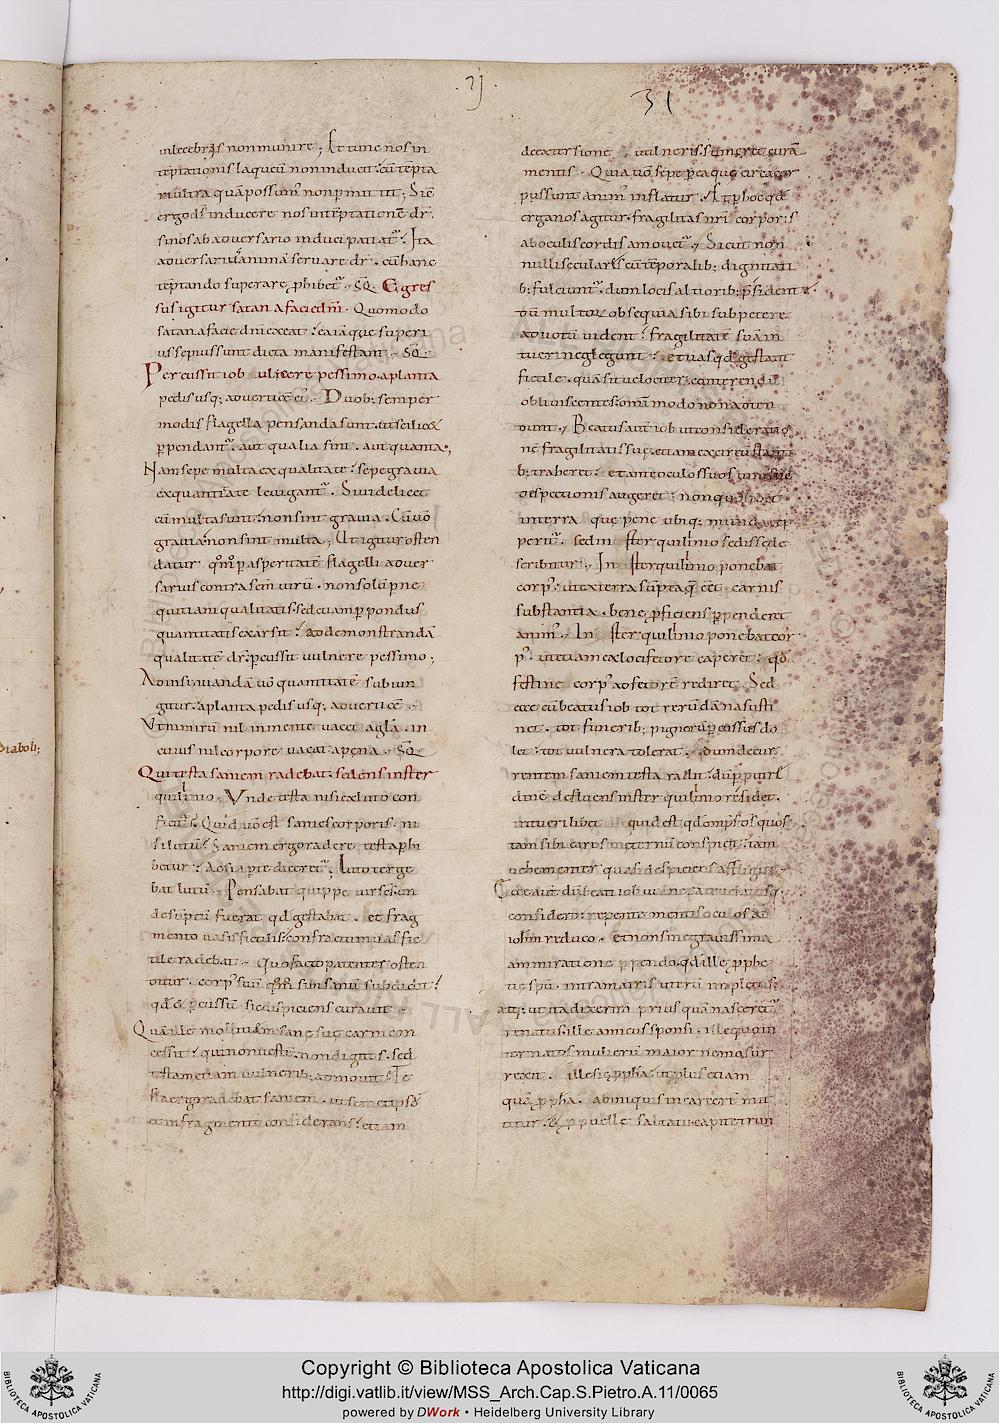 31
inlecebris non munire; Et tunc nos in
teptationis laqueũ non inducit. cũ tepta
ergo ds inducere nos inteptatione dr.
sinos ab aduersario induci patiat. Ita
teptando superare phibet. SQ. Egres
sus igitur satan a facie dñi. Quomodo
satan a facie dñi exeat
us sepius sunt dicta manifestant. SQ.
Percussit iob ulcere pessimo. a planta
pedis usq; ad uerticẽ ei. Duob; semper
modis flagella pensanda sunt. ut scilicet
ppendant. aut qualia sint. aut quanta.
Nam sepe multa ex qualitate. sepe grauia
ex quantitate leuigant. Si uidelicet
cũ multa sunt. non sint grauia. Cũ uõ
grauia. non sint multa; Ut igitur osten
sarius contra scm uirũ. non solũ pne
quitiam qualitatis. sed etiam p pondus
quantitatis exarsit. ad demonstrandã
qualitatẽ dr. pcussit uulnere pessimo;
Ad insinuandã uõ quantitatẽ subiun
gitur. a planta pedis usq; ad uerticẽ.
Ut nimirũ nil in mente uacet a gla. in
cuius nil corpore uacat a pena. SQ
Qui testa saniem radebat. sedens in ster
quilinio; Unde testa nisi ex luto con
ficit. Quid uõ est sanies corporis. ni
si lutũ. Saniem ergo radere testa phi
betur. Ac si apte diceret. Luto terge
bat lutũ. Pensabat quippe uir scs. un
de suptũ fuerat qd gestabat. et frag
mento uasis fictilis. confractum uas fic
tile radebat. Quo facto patenter osten
ditur. corp suũ
pcussũ. sic dispiciens curauit
cessit. qui non ueste. non digitos. sed
testam etiam uulnerib; admouit. Te
sta ergo radebat saniem. ut semetipsũ
et in fragmento considerans. etiam
31
de extersione uulneris. sumeret curã
mentis. Quia uõ sepe p ea que circa cor
pus sunt anim inflatur. Et p hoc qd
erga nos agitur. fragilitas nri corporis
ab oculis cordis amouet. Sicut non
nulli seculares. cũ teporalib; dignitati
b; fulciunt. dum locis altiorib; psident
dũ multor obsequia sibi subpetere
ad uotũ uident. fragilitatẽ suam
tueri neglegunt. et uas qd gestant
fictile. quã sit uelociter conterendũ
obliuiscentes. omi modo non adten
dunt. Beatus autẽ iob ut consideratio
ne fragilitatis sue. etiam ex circũstanti
b; traheret. et ante oculos suos
despectionis augeret. non
in terra que pene ubiq; munda rep
peritur. sed in sterquilinio sedisse de
scribitur. In sterquilinio ponebat
corp. ut extera suptaq cẽt carnis
substantia. bene pficiens ppenderet
anim. In sterquilinio ponebat cor
p. ut etiam ex loci fetore caperet. qd
festine corp ad fetorẽ rediret. Sed
ecce cũ beatus iob tot rerũ dãna susti
net. tot funerib; pignerũ pcussus do
let. tot uulnera tolerat. dum decur
rentem saniem testa radit
dinẽ defluens in sterquilinio residet.
intueri libet quid est qd omps ds quos
tam sibi caros in eternũ conspicit. tam
uehementer quasi despiciens affligit.
considerib; repente mentis oculos ad
iohm reduco. et non sine grauissima
ammiratione ppendo. qd ille pphe
tie spu intra matris uterũ impletus;
atq; ut ita dixerim priusquã nasceret
renatus. ille amicus sponsi. ille quo in
ter natos mulierũ maior nemo sur
rexit. ille sic ppha. ut plus etiam
quã ppha. ab iniquis in carcerẽ mit
titur. et p puelle saltatu capite trun
diaboli;
Copyright © Biblioteca Apostolica Vaticana
http://digi.vatlib.it/view/MSS_Arch.Cap.S.Pietro.A.11/0065
powered by DWork • Heidelberg University Library
BIBLIOTECA APOSTOLICA VATICANA
BIBLIOTECA APOSTOLICA VATICANA